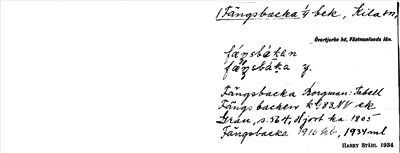 Fängsbacka 1/4 bek, Kila sn,
Övertjurbo hd, Västmanlands län.
fäŋsbakan
fäŋsbáka y.
Fängsbacka Borgman: Tabell
Fängsbacken kb 83 NV ek
Grau, s. 564, Hjort ka 1805
Fängsbacka 1910 kb, 1934 ml
HARRY STÅHL 1934